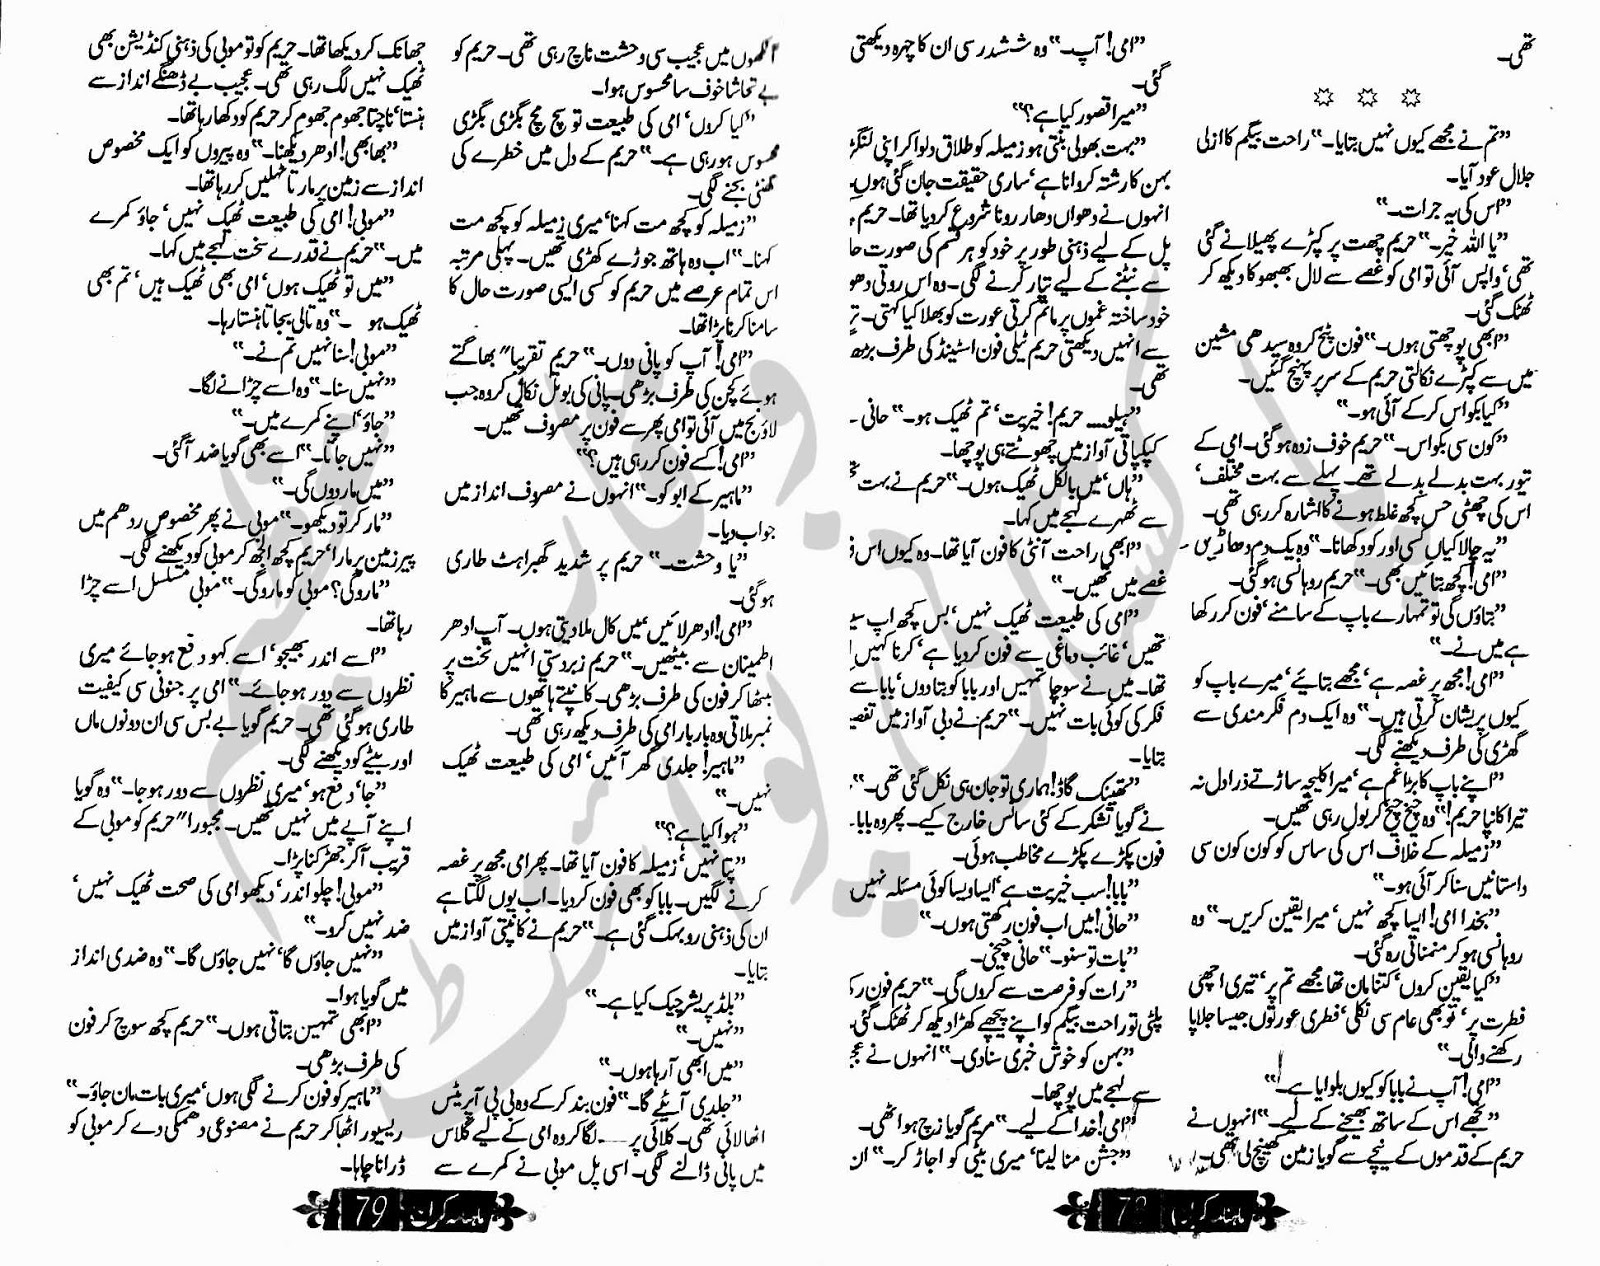 تھی۔
☼ ☼ ☼
”تم نے مجھے کیوں نہیں بتایا۔“ راحت بیگم کا ازلی
جلال عود آیا۔
”اس کی یہ جرات۔“
”یا اللہ خیر۔“ حریم چھت پر کپڑے پھیلانے گئی
تھی‘ واپس آئی تو امی کو غصے سے لال بھبھوکا دیکھ کر
ٹھٹک گئی۔
”ابھی پوچھتی ہوں۔“ فون پٹخ کر وہ سیدھی مشین
میں سے کپڑے نکالتی حریم کے سر پر پہنچ گئیں۔
”کیا بکواس کر کے آئی ہو۔“
”کون سی بکواس۔“ حریم خوف زدہ ہو گئی۔ امی کے
تیور بہت بدلے بدلے تھے۔ پہلے سے بہت مختلف‘
اس کی چھٹی حس کچھ غلط ہونے کا اشارہ کر رہی تھی۔
”یہ چالاکیاں کسی اور کو دکھانا۔“ وہ یک دم دھاڑیں۔
”امی! کچھ بتائیں بھی۔“ حریم روہانسی ہو گئی۔
”بتاؤں گی تو تمہارے باپ کے سامنے‘ فون کر رکھا
ہے میں نے۔“
”امی! مجھ پر غصہ ہے‘ مجھے بتائیے‘ میرے باپ کو
کیوں پریشان کرتی ہیں۔“ وہ ایک دم فکر مندی سے
گھڑی کی طرف دیکھنے لگی۔
”اپنے باپ کا بڑا غم ہے‘ میرا کلیجہ ساڑتے ذرا دل نہ
تیرا کانپا حریم!“ وہ چیخ چیخ کر بول رہی تھیں۔
”زمیلہ کے خلاف اس کی ساس کو کون کون سی
داستانیں سنا کر آئی ہو۔“
”بخدا امی! ایسا کچھ نہیں‘ میرا یقین کریں۔“ وہ
روہانسی ہو کر منمناتی رہ گئی۔
”کیا یقین کروں‘ کتنا مان تھا مجھے تم پر‘ تیری اچھی
فطرت پر‘ تو بھی عام سی نکلی‘ فطری عورتوں جیسا جلاپا
رکھنے والی۔“
”امی! آپ نے بابا کو کیوں بلوایا ہے۔“
”تجھے اس کے ساتھ بھیجنے کے لیے۔“ انہوں نے
حریم کے قدموں کے نیچے سے گویا زمین کھینچ لی تھی۔
”امی! آپ۔“ وہ ششدر سی ان کا چہرہ دیکھتی
گئی۔
”میرا قصور کیا ہے؟“
”بہت بھولی بنتی ہو زمیلہ کو طلاق دلوا کر اپنی لنگڑی
بہن کا رشتہ کروانا ہے‘ ساری حقیقت جان گئی ہوں۔
انہوں نے دھواں دھار رونا شروع کر دیا تھا۔ حریم
پل کے لیے ذہنی طور پر خود کو ہر قسم کی صورت حا
سے نبٹنے کے لیے تیار کرنے لگی۔ وہ اس روتی دھو
خود ساختہ غموں پر ماتم کرتی عورت کو بھلا کیا کہتی۔
سے انہیں دیکھتی حریم ٹیلی فون اسٹینڈ کی طرف بڑھ
تھی۔
”ہیلو.... حریم! خیریت‘ تم ٹھیک ہو۔“ حانی
کپکپاتی آواز میں چھوٹتے ہی پوچھا۔
”ہاں‘ میں بالکل ٹھیک ہوں۔“ حریم نے بہت
سے ٹھہرے لہجے میں کہا۔
”ابھی راحت آنٹی کا فون آیا تھا۔ وہ کیوں اس
غصے میں تھیں۔“
”امی کی طبیعت ٹھیک نہیں‘ بس کچھ اپ سیٹ
تھیں‘ غائب دماغی سے فون کر دیا ہے‘ کرنا کہیں
تھا۔ میں نے سوچا تمہیں اور بابا کو بتا دوں‘ بابا سے
فکر کی کوئی بات نہیں۔“ حریم نے دبی آواز میں
بتایا۔
”تھینک گاڈ! ہماری تو جان ہی نکل گئی تھی۔“
نے گویا تشکر کے کئی سانس خارج کیے۔ پھر وہ بابا
فون پکڑے پکڑے مخاطب ہوئی۔
”بابا! سب خیریت ہے‘ ایسا ویسا کوئی مسئلہ نہیں
”حانی! میں اب فون رکھتی ہوں۔“
”بات تو سنو۔“ حانی چیخی۔
”رات کو فرصت سے کروں گی۔“ حریم فون رکھ
پلٹی تو راحت بیگم کو اپنے پیچھے کھڑا دیکھ کر ٹھٹک گئی۔
”بہن کو خوش خبری سنا دی۔“ انہوں نے
سے لہجے میں پوچھا۔
”امی! خدا کے لیے۔“ مریم گویا زچ ہو اٹھی۔
”جشن منا لینا‘ میری بیٹی کو اجاڑ کر۔“ ان
ماہنامہ کرن 78
آنکھوں میں عجیب سی وحشت ناچ رہی تھی۔ حریم کو
بے تحاشا خوف سا محسوس ہوا۔
”کیا کروں‘ امی کی طبیعت تو سچ مچ بگڑی بگڑی
محسوس ہو رہی ہے۔“ حریم کے دل میں خطرے کی
گھنٹی بجنے لگی۔
”زمیلہ کو کچھ مت کہنا‘ میری زمیلہ کو کچھ مت
کہنا۔“ اب وہ ہاتھ جوڑے کھڑی تھیں۔ پہلی مرتبہ
اس تمام عرصے میں حریم کو کسی ایسی صورت حال کا
سامنا کرنا پڑا تھا۔
”امی! آپ کو پانی دوں۔“ حریم تقریبا“ بھاگتے
ہوئے کچن کی طرف بڑھی۔ پانی کی بوتل نکال کر وہ جب
لاؤنج میں آئی تو امی پھر سے فون پر مصروف تھیں۔
”امی! کسے فون کر رہی ہیں؟“
”ماہیر کے ابو کو۔“ انہوں نے مصروف انداز میں
جواب دیا۔
”یا وحشت۔“ حریم پر شدید گھبراہٹ طاری
ہو گئی۔
”امی! ادھر لائیں‘ میں کال ملا دیتی ہوں۔ آپ ادھر
اطمینان سے بیٹھیں۔“ حریم زبردستی انہیں تخت پر
بیٹھا کر فون کی طرف بڑھی۔ کانپتے ہاتھوں سے ماہیر کا
نمبر ملاتی وہ بار بار امی کی طرف دیکھ رہی تھی۔
”ماہیر! جلدی گھر آئیں‘ امی کی طبیعت ٹھیک
نہیں۔“
”ہوا کیا ہے؟“
”پتا نہیں‘ زمیلہ کا فون آیا تھا۔ پھر امی مجھ پر غصہ
کرنے لگیں۔ بابا کو بھی فون کر دیا۔ اب یوں لگتا ہے
ان کی ذہنی رو بہک گئی ہے۔“ حریم نے کانپتی آواز میں
بتایا۔
”بلڈ پریشر چیک کیا ہے۔“
”نہیں۔“
”میں ابھی آ رہا ہوں۔“
”جلدی آئیے گا۔“ فون بند کر کے وہ بی پی آپریٹس
اٹھا لائی تھی۔ کلائی پر ---- لگا کر وہ امی کے لیے گلاس
میں پانی ڈالنے لگی۔ اسی پل موبی نے کمرے سے
جھانک کر دیکھا تھا۔ حریم کو تو موبی کی ذہنی کنڈیشن بھی
ٹھیک نہیں لگ رہی تھی۔ عجیب بے ڈھنگے انداز سے
ہنستا‘ ناچتا جھوم جھوم کر حریم کو دکھا رہا تھا۔
”بھابھی! ادھر دیکھنا۔“ وہ پیروں کو ایک مخصوص
انداز سے زمین پر مارتا ٹہلیں کر رہا تھا۔
”موبی! امی کی طبیعت ٹھیک نہیں‘ جاؤ کمرے
میں۔“ حریم نے قدرے سخت لہجے میں کہا۔
”میں تو ٹھیک ہوں‘ امی بھی ٹھیک ہیں‘ تم بھی
ٹھیک ہو۔“ وہ تالی بجاتا ہنستا رہا۔
”موبی! سنا نہیں تم نے۔“
”نہیں سنا۔“ وہ اسے چڑانے لگا۔
”جاؤ‘ اپنے کمرے میں۔“
”نہیں جاتا۔“ اسے بھی گویا ضد آ گئی۔
”میں مار دوں گی۔“
”مار کر تو دیکھو۔“ موبی نے پھر مخصوص ردھم میں
پیر زمین پر مارا‘ حریم کچھ الجھ کر موبی کو دیکھنے لگی۔
”مارو گی؟ موبی کو مارو گی۔“ موبی مسلسل اسے چڑا
رہا تھا۔
”اسے اندر بھیجو‘ اسے کہو دفع ہو جائے میری
نظروں سے دور ہو جائے۔“ امی پر جنونی سی کیفیت
طاری ہو گئی تھی۔ حریم گویا بے بس سی ان دونوں ماں
اور بیٹے کو دیکھنے لگی۔
”جا‘ دفع ہو‘ میری نظروں سے دور ہو جا۔“ وہ گویا
اپنے آپے میں نہیں تھیں۔ مجبورا“ حریم کو موبی کے
قریب آ کر جھڑکنا پڑا۔
”موبی! چلو اندر‘ دیکھو امی کی صحت ٹھیک نہیں‘
ضد نہیں کرو۔“
”نہیں جاؤں گا‘ نہیں جاؤں گا۔“ وہ ضدی انداز
میں گویا ہوا۔
”ابھی تمہیں بتاتی ہوں۔“ حریم کچھ سوچ کر فون
کی طرف بڑھی۔
”ماہیر کو فون کرنے لگی ہوں‘ میری بات مان جاؤ۔“
ریسیور اٹھا کر حریم نے مصنوعی دھمکی دے کر موبی کو
ڈرانا چاہا۔
ماہنامہ کرن 79
پاکستانی پوائنٹ